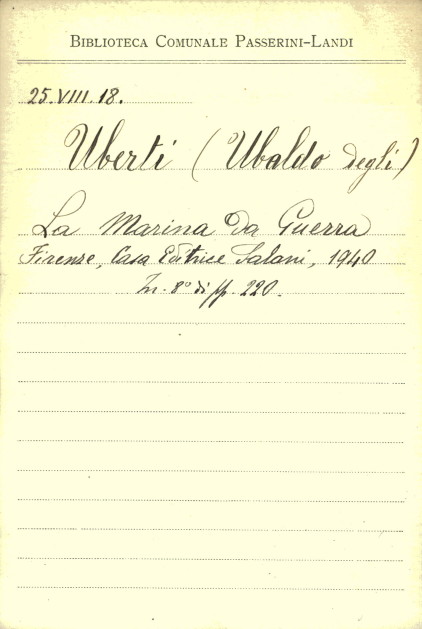 BIBLIOTECA COMUNALE PASSERINI-LANDI
25.VIII.18.
Uberti (Ubaldo degli)
La Marina Da Guerra
Firenze, Casa Editrice Salani, 1940
In. 8° di pp. 220.